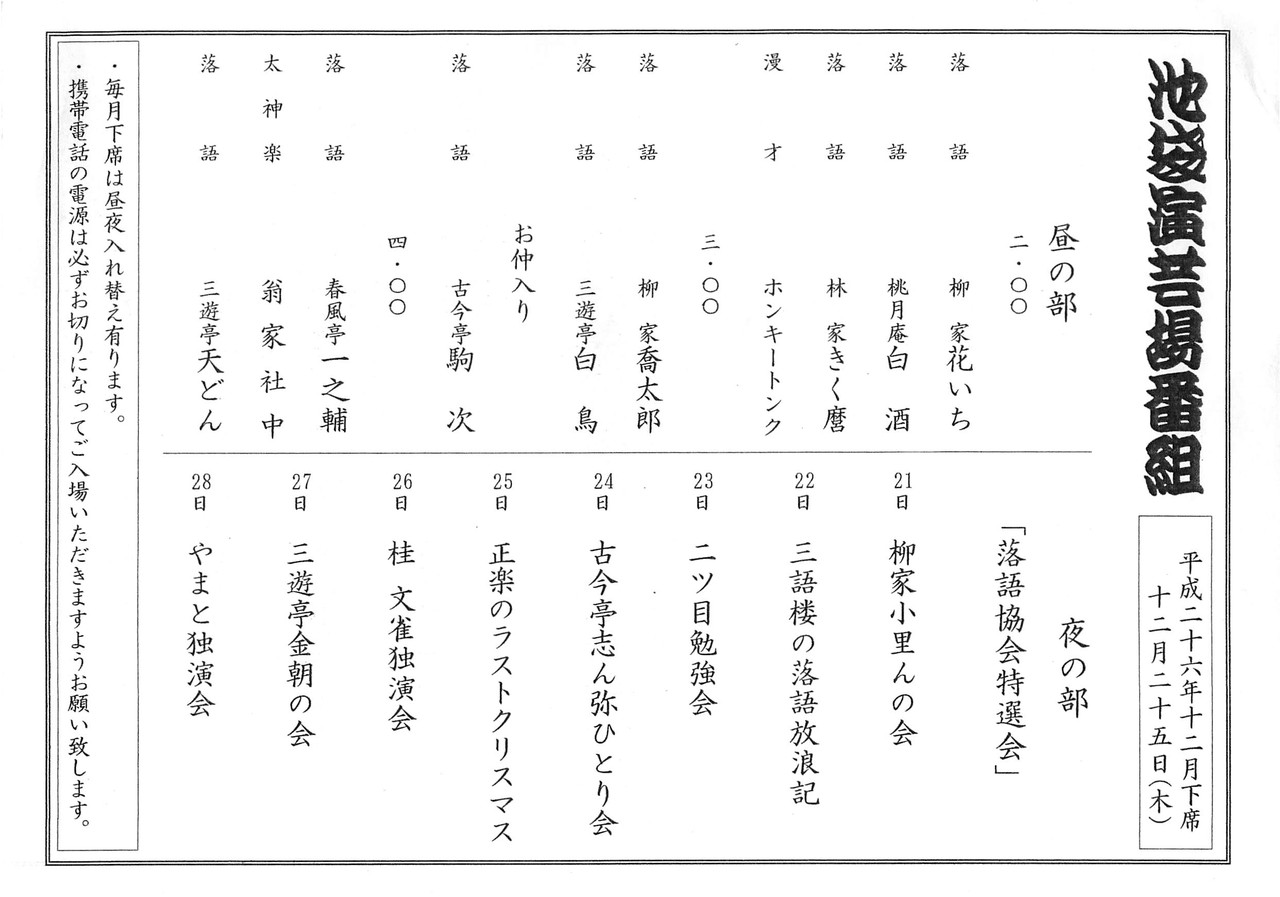 池袋演芸場番組
平成二十六年十二月下席
十二月二十五日(木)
昼の部
二・〇〇
落語 柳家花いち
落語 桃月庵白酒
落語 林家きく麿
漫才 ホンキートンク
三・〇〇
落語 柳家喬太郎
落語 三遊亭白鳥
お仲入り
落語 古今亭駒次
四・〇〇
落語 春風亭一之輔
太神楽 翁家社中
落語 三遊亭天どん
夜の部
「落語協会特選会」
21日 柳家小里んの会
22日 三語楼の落語放浪記
23日 二ツ目勉強会
24日 古今亭志ん弥ひとり会
25日 正楽のラストクリスマス
26日 桂文雀独演会
27日 三遊亭金朝の会
28日 やまと独演会
・毎月下席は昼夜入れ替え有ります。
・携帯電話の電源は必ずお切りになってご入場いただきますようお願い致します。